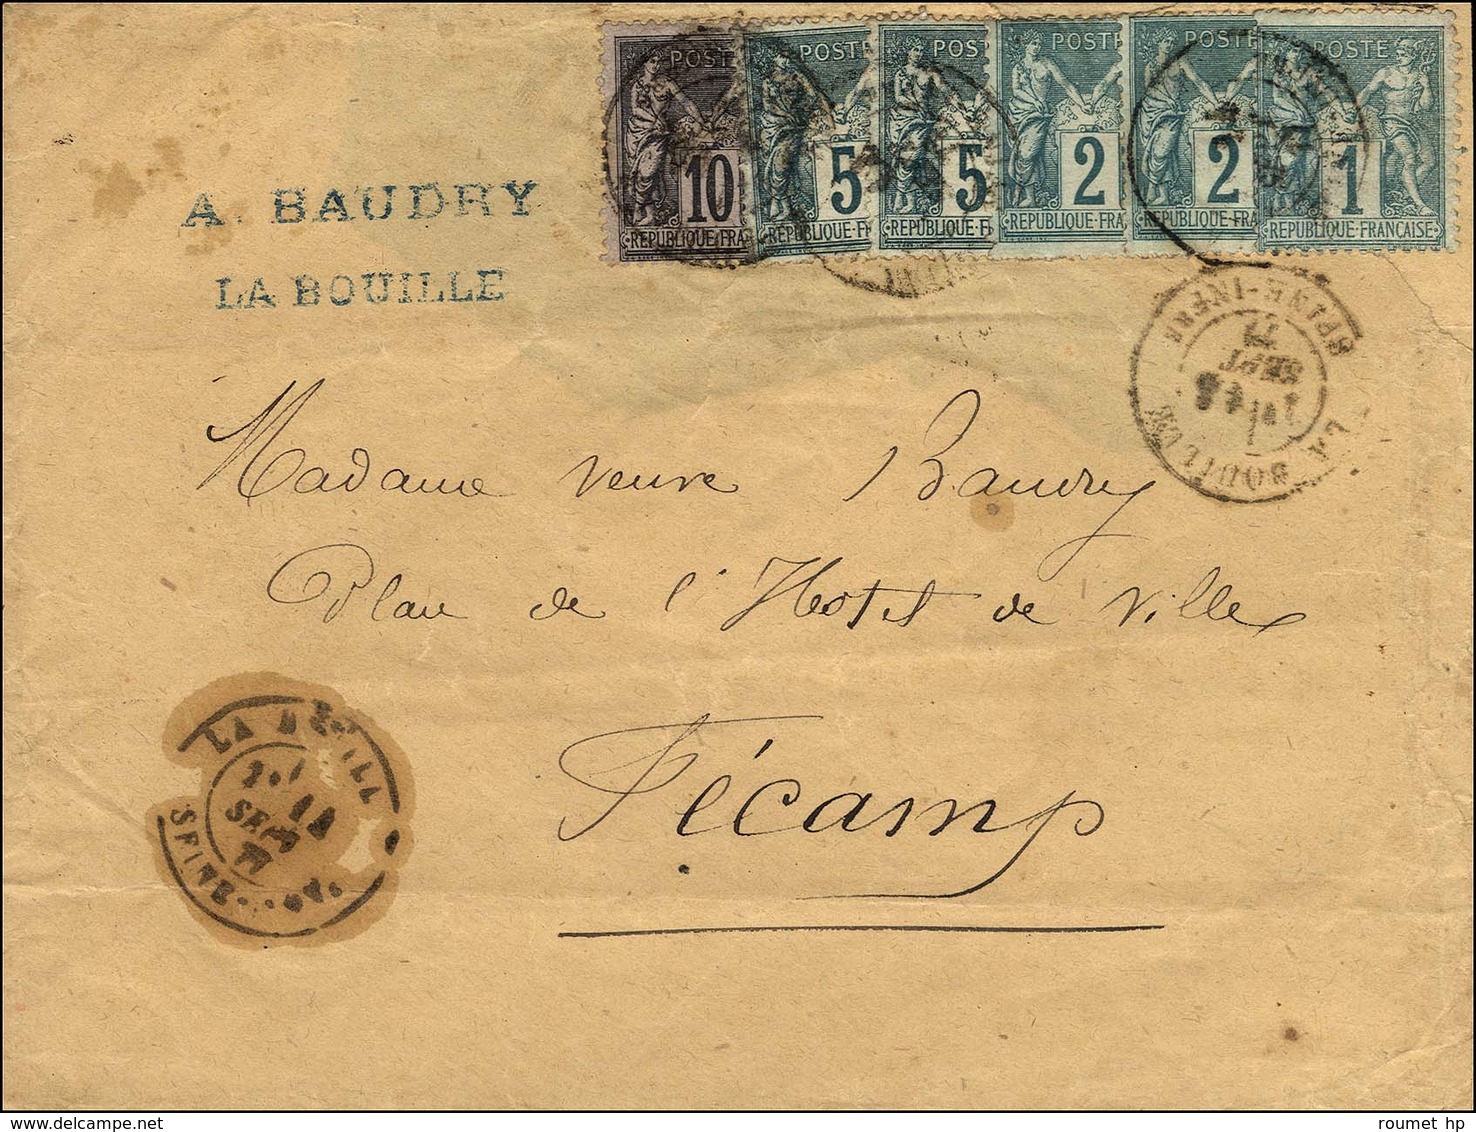 POSTE POSTE POST POSTE POSTE POSTE
10 5 5 2 2 1
REPUBLIQUE·FRA REPUBLIQUE·F REPUBLIQUE·F REPUBLIQUE·FRA REPUBLIQUE·FRA REPUBLIQUE·FRANCAISE
A. BAUDRY
LA BOUILLE
SEINE-INFRE
77
SEPT
LA BOUILLE
Madame veuve Baudry
Place de l'Hotel de Ville
Fécamp
LA BOUILL
SEPT
77
SEINE
roumet hp